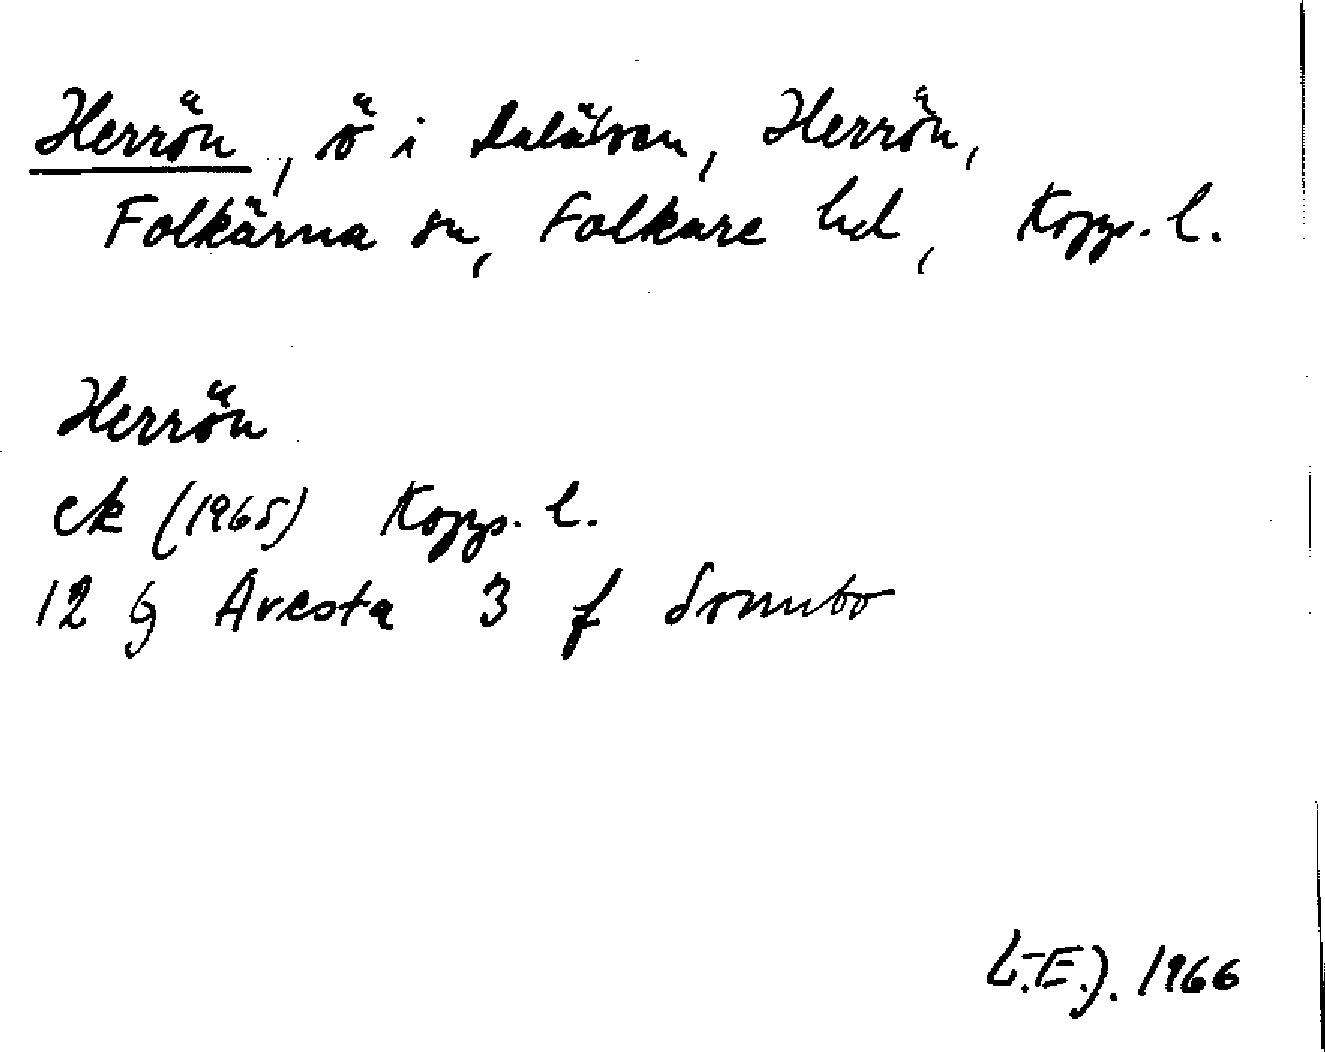 Herrön, ö i Dalälven, Herrön,
Folkärna sn, Folkare hd, Kopp. l.
Herrön
ek (1965) Kopp. l.
12 G Avesta 3 f Sonnbo
L.-E.J. 1966